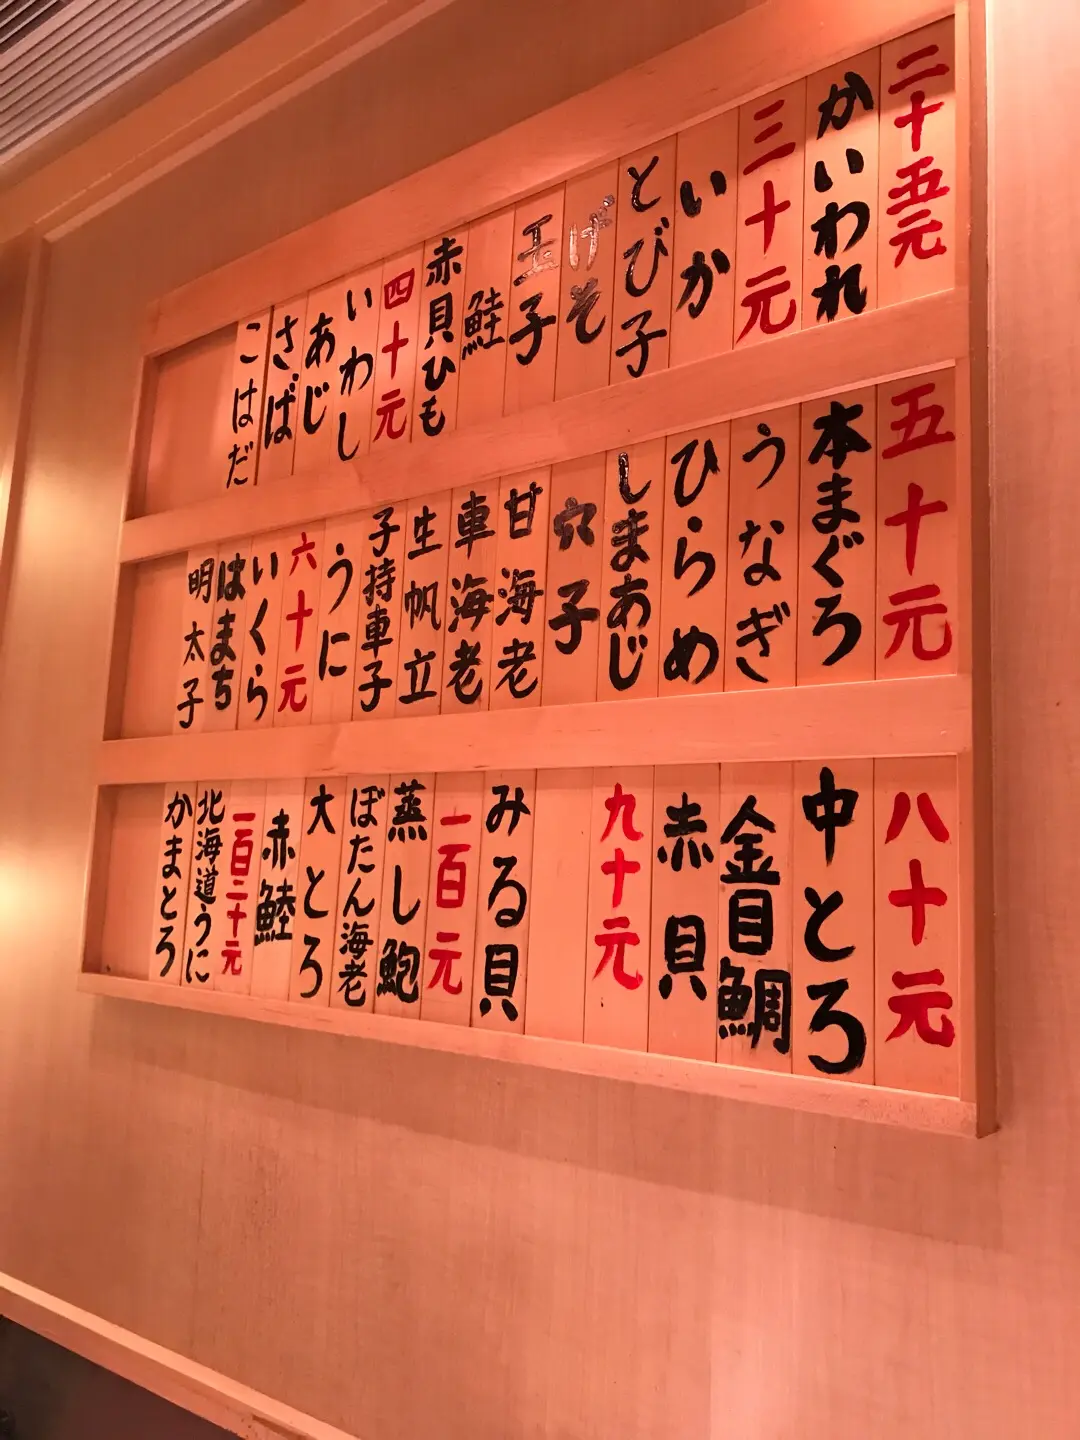 二十五元
かいわれ
三十元
いか
とび子
げそ
玉子
鮭
赤貝ひも
四十元
いわし
あじ
さば
こはだ
五十元
本まぐろ
うなぎ
ひらめ
しまあじ
穴子
甘海老
車海老
生帆立
子持車子
うに
六十元
いくら
はまち
明太子
八十元
中とろ
金目鯛
赤貝
九十元
みる貝
一百元
蒸し鮑
ぼたん海老
大とろ
赤鯥
一百二十元
北海道うに
かまとろ